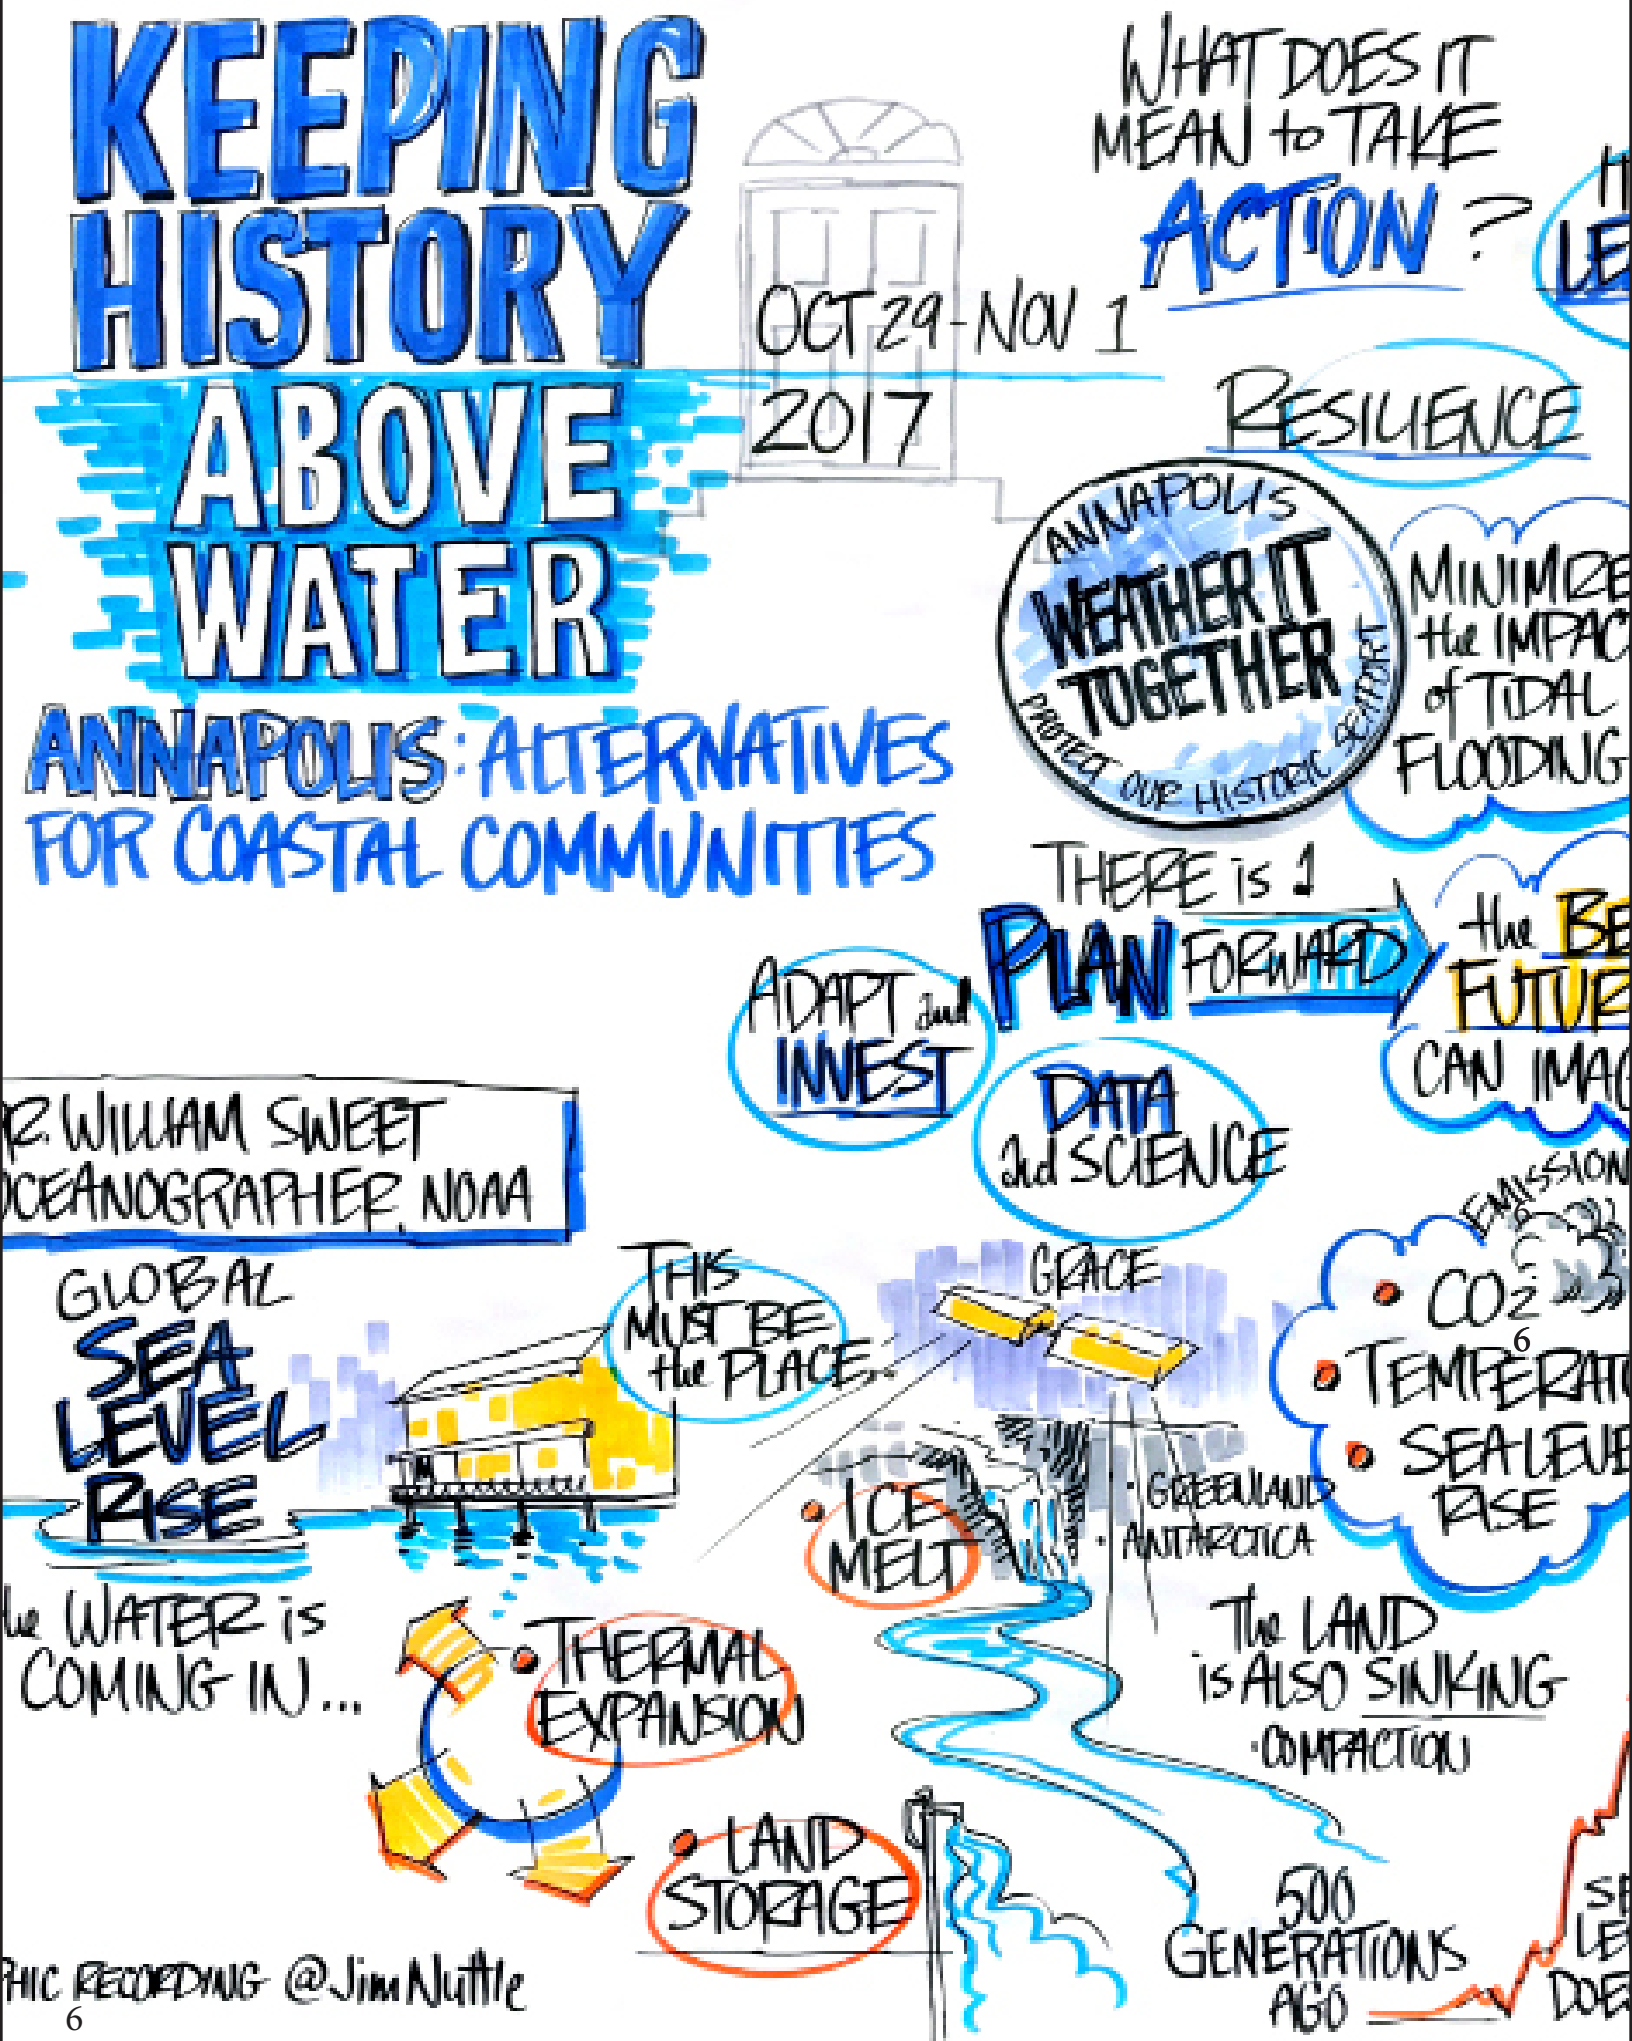 KEEPING
HISTORY
ABOVE
WATER
OCT 29 - NOV 1
2017
ANNAPOLIS: ALTERNATIVES
FOR COASTAL COMMUNITIES
WHAT DOES IT
MEAN to TAKE
ACTION?
LE
RESILIENCE
ANNAPOLIS
WEATHER IT
TOGETHER
PROTECT OUR HISTORIC SEAPORT
MINIMIZE
the IMPAC
of TIDAL
FLOODING
THERE is 1
PLAN FORWARD
the BE
FUTUR
CAN IMAG
ADAPT and
INVEST
DATA
and SCIENCE
R. WILLIAM SWEET
OCEANOGRAPHER, NOAA
GLOBAL
SEA
LEVEL
RISE
THIS
MUST BE
the PLACE...
GRACE
EMISSION
CO2
6
TEMPERAT
SEA LEVE
RISE
ICE
MELT
GREENLAND
ANTARCTICA
he WATER is
COMING IN...
THERMAL
EXPANSION
The LAND
is ALSO SINKING
COMPACTION
LAND
STORAGE
500
GENERATIONS
AGO
SE
LE
DOE
PHIC RECORDING @JimNuttle
6